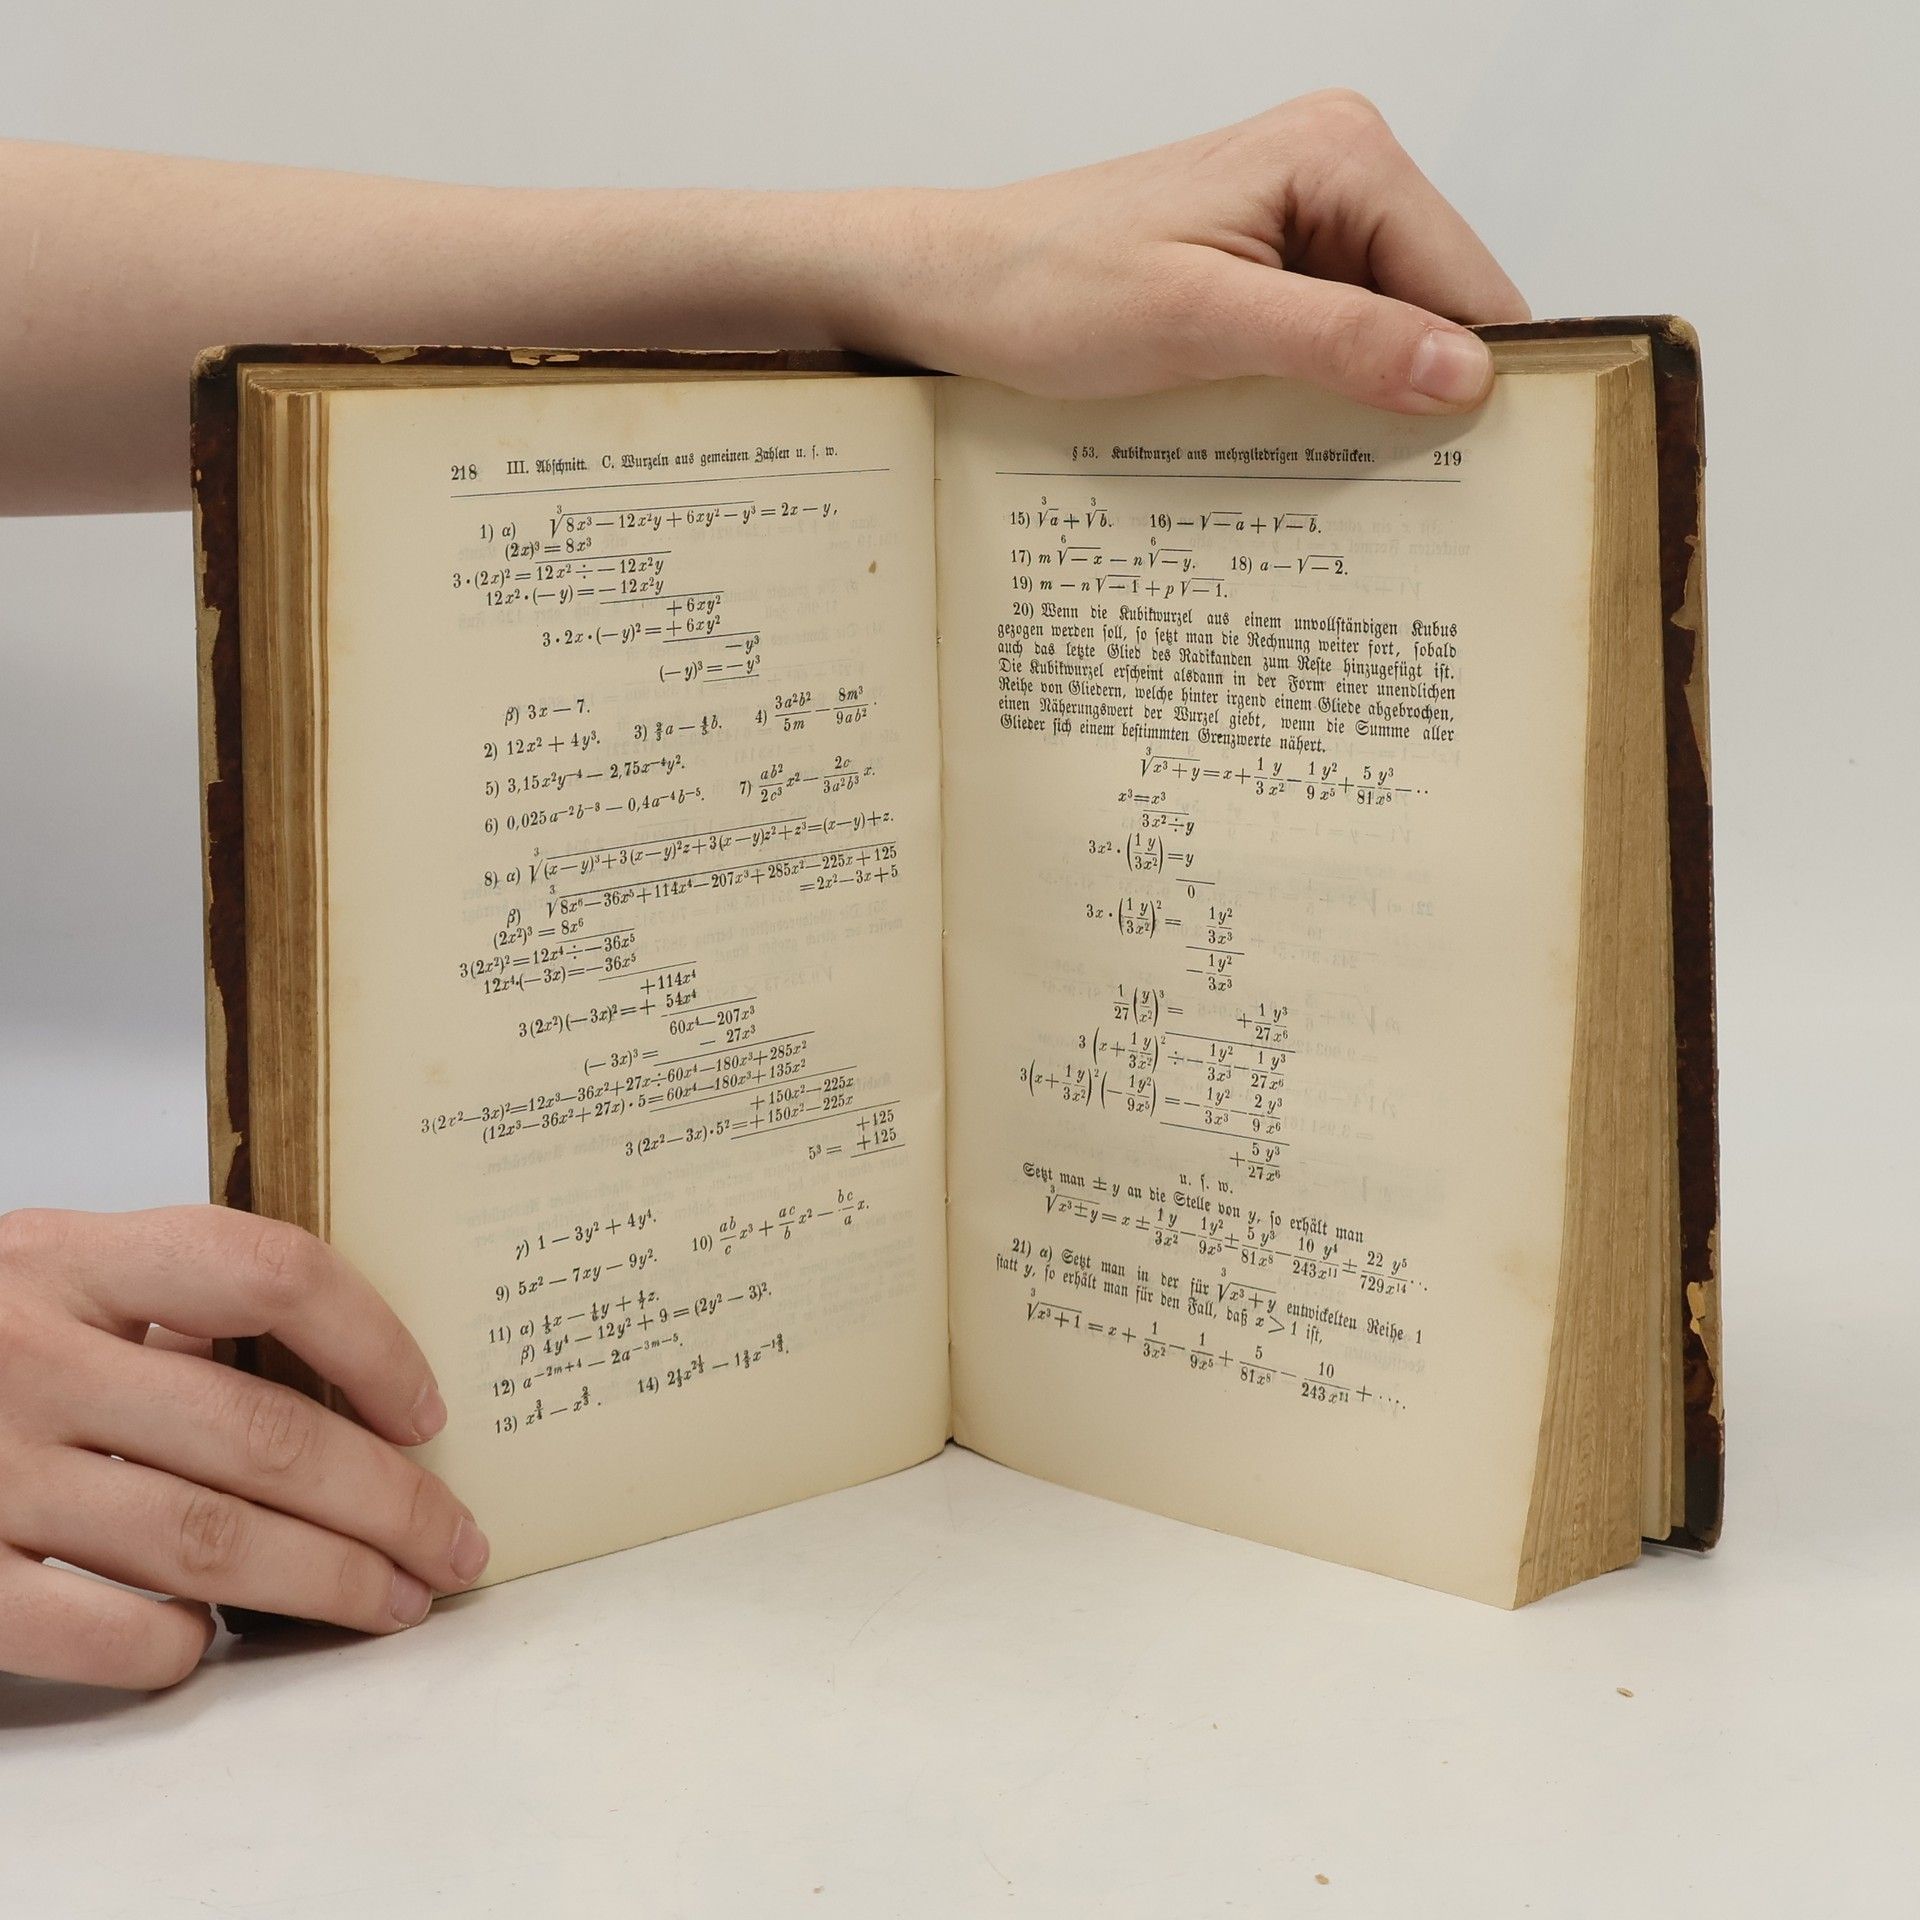 218 III. Abschnitt. C. Wurzeln aus gemeinen Zahlen u. s. w.
1) α) ∛(8x³ — 12x²y + 6xy² — y³) = 2x — y,
(2x)³ = 8x³
3 · (2x)² = 12x² ÷ — 12x²y
12x² · (— y) = — 12x²y
+ 6xy²
3 · 2x · (— y)² = + 6xy²
— y³
(— y)³ = — y³
β) 3x — 7.
2) 12x² + 4y³. 3) ⅔a — ⅘b. 4) 3a²b²/5m — 8m³/9ab².
5) 3,15x²y⁻⁴ — 2,75x⁻⁴y².
6) 0,025a⁻²b⁻³ — 0,4a⁻⁴b⁻⁵. 7) ab²/2c³ x² — 2c/3a²b³ x.
8) α) ∛((x—y)³ + 3(x—y)²z + 3(x—y)z² + z³) = (x—y)+z.
β) ∛(8x⁶—36x⁵+114x⁴—207x³+285x²—225x+125)
=2x²—3x+5
(2x²)³ = 8x⁶
3(2x²)²=12x⁴ ÷ —36x⁵
12x⁴·(—3x)=—36x⁵
+114x⁴
3(2x²)(—3x)²=+ 54x⁴
60x⁴—207x³
(—3x)³= — 27x³
3(2x²—3x)²=12x³—36x²+27x÷60x⁴—180x³+285x²
(12x³—36x²+27x)·5=60x⁴—180x³+135x²
+150x²—225x
3(2x²—3x)·5²=+150x²—225x
+125
5³ = +125
γ) 1 — 3y² + 4y⁴.
9) 5x² — 7xy — 9y². 10) ab/c x³ + ac/b x² — bc/a x.
11) α)
β) 4y⁴ — 12y² + 9 = (2y² — 3)².
12) a^(—2m+4) — 2a^(—3m—5).
13) x^(3/4) — x^(2/3). 14)
§ 53. Kubikwurzel aus mehrgliedrigen Ausdrücken. 219
15) ∛a + ∛b. 16) — √(—a) + √(—b).
17) m ⁶√(—x) — n ⁶√(—y). 18) a — √(—2).
19) m — n√(—1) + p√(—1).
20) Wenn die Kubikwurzel aus einem unvollständigen Kubus
gezogen werden soll, so setzt man die Rechnung weiter fort, sobald
auch das letzte Glied des Radikanden zum Reste hinzugefügt ist.
Die Kubikwurzel erscheint alsdann in der Form einer unendlichen
Reihe von Gliedern, welche hinter irgend einem Gliede abgebrochen,
einen Näherungswert der Wurzel giebt, wenn die Summe aller
Glieder sich einem bestimmten Grenzwerte nähert.
∛(x³+y) = x + 1/3 y/x² — 1/9 y²/x⁵ + 5/81 y³/x⁸ — ··
x³=x³
3x² ÷ y
3x² · (1/3 y/x²) = y
0
3x · (1/3 y/x²)² = 1y²/3x³
— 1y²/3x³
1/27 (y/x²)³ = + 1y³/27x⁶
3 (x + 1/3 y/x²)² ÷ — 1y²/3x³ — 1y³/27x⁶
3(x + 1/3 y/x²)² (— 1y²/9x⁵) = — 1y²/3x³ — 2/9 y³/x⁶
+ 5y³/27x⁶
u. s. w.
Setzt man ± y an die Stelle von y, so erhält man
∛(x³ ± y) = x ± 1y/3x² — 1y²/9x⁵ ± 5y³/81x⁸ — 10y⁴/243x¹¹ ± 22y⁵/729x¹⁴··.
21) α) Setzt man in der für ∛(x³+y) entwickelten Reihe 1
statt y, so erhält man für den Fall, daß x > 1 ist,
∛(x³+1) = x + 1/3x² — 1/9x⁵ + 5/81x⁸ — 10/243x¹¹ + ····